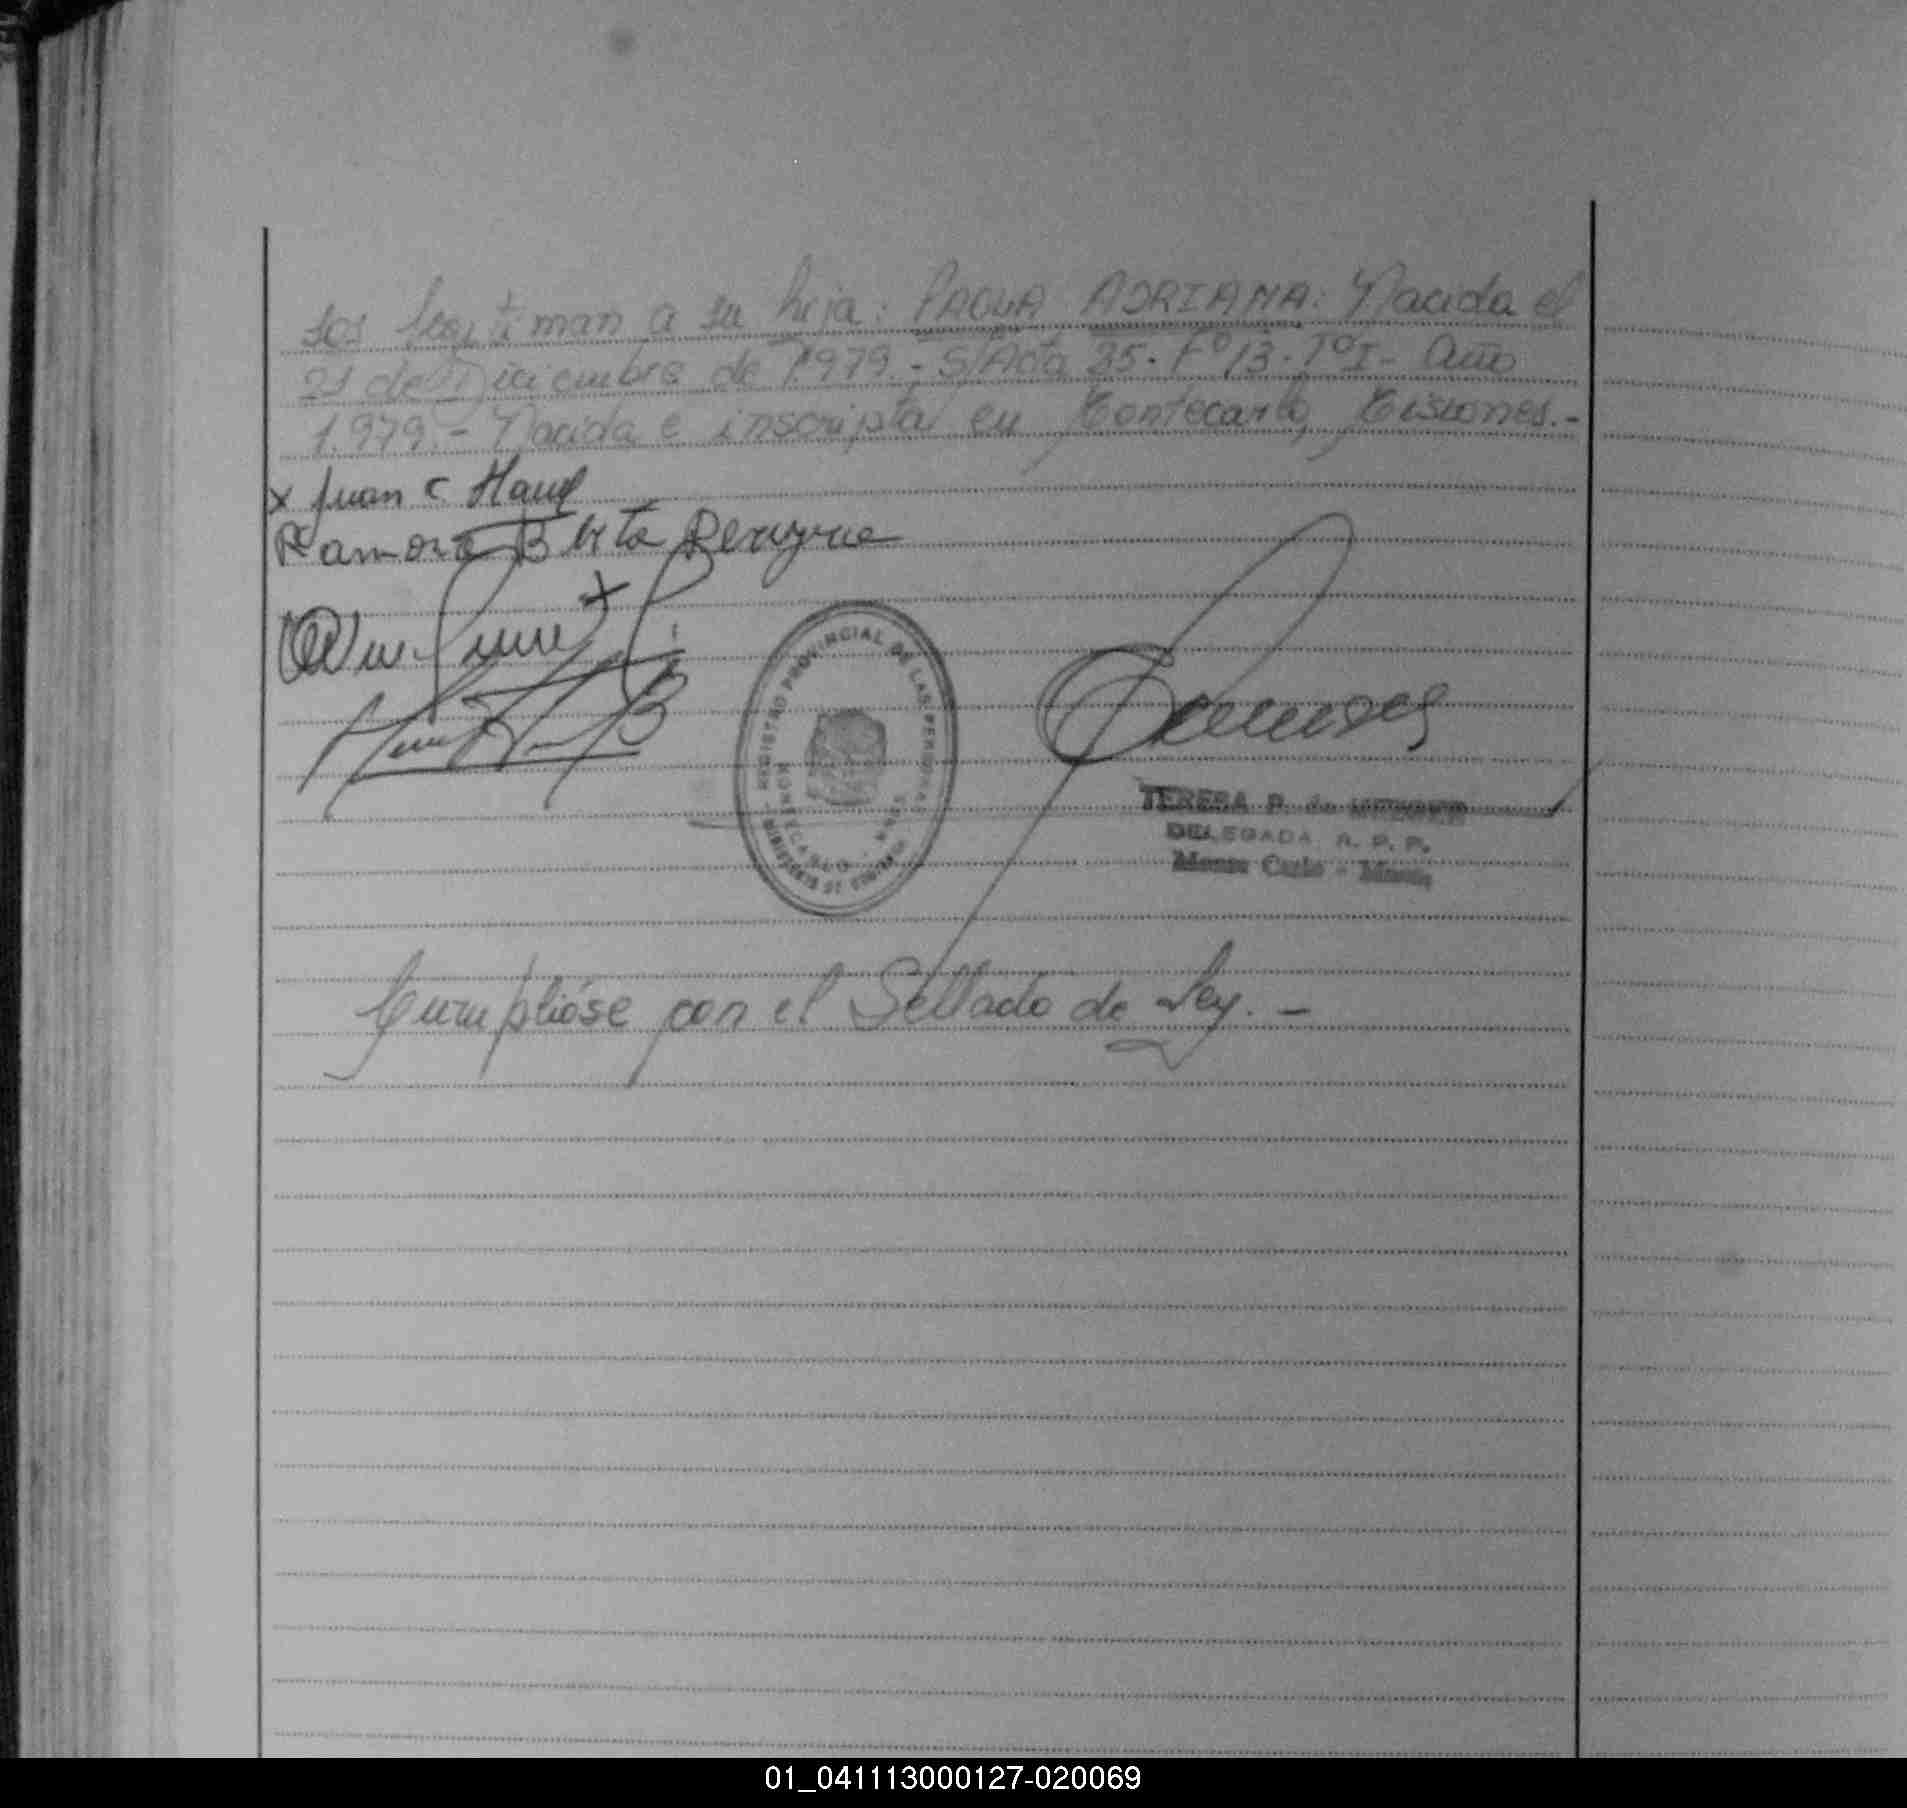 sos legitiman a su hija: PAOLA ADRIANA: Nacida el
21 de Diciembre de 1979.- S/Acta 35. Fº 13. Tº I- Año
1.979.- Nacida e inscripta en Montecarlo, Misiones.-
x Juan C Haug
Ramona Berta Pereyra
x
REGISTRO PROVINCIAL DE LAS PERSONAS
MONTECARLO
TERESA P. de
DELEGADA R. P. P.
Monte Carlo - Mnes
Cumplióse con el Sellado de Ley. -
01_041113000127-020069